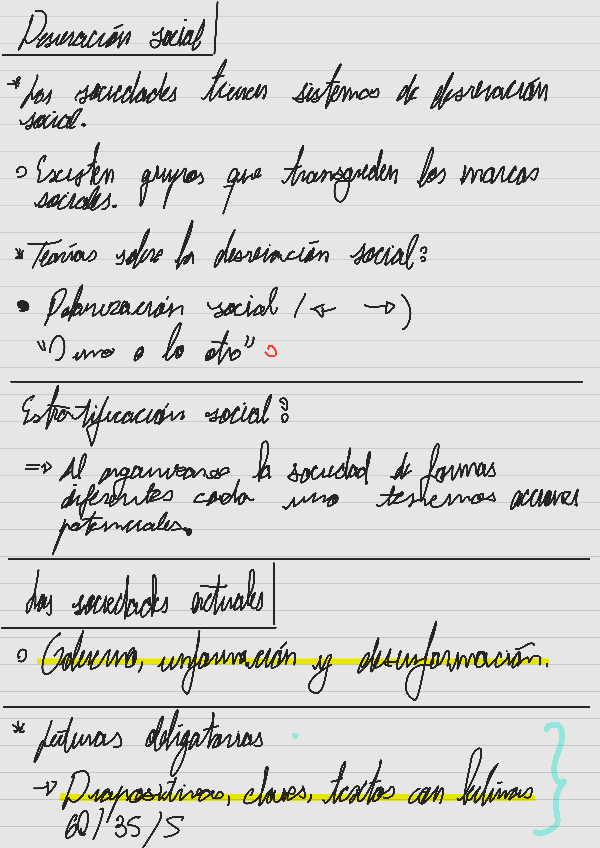 Desviación social
* Las sociedades tienen sistemas de desviación
social.
○ Existen grupos que transgreden los marcos
sociales.
* Teorías sobre la desviación social:
● Polarización social (← →)
"O uno o lo otro"
Estratificación social:
⇒ Al organizarse la sociedad de formas
diferentes cada uno tenemos acciones
potenciales.
Las sociedades actuales
○ Gobierno, información y desinformación.
* Lecturas obligatorias
→ Diapositivas, claves, textos con lecturas
60/35/5